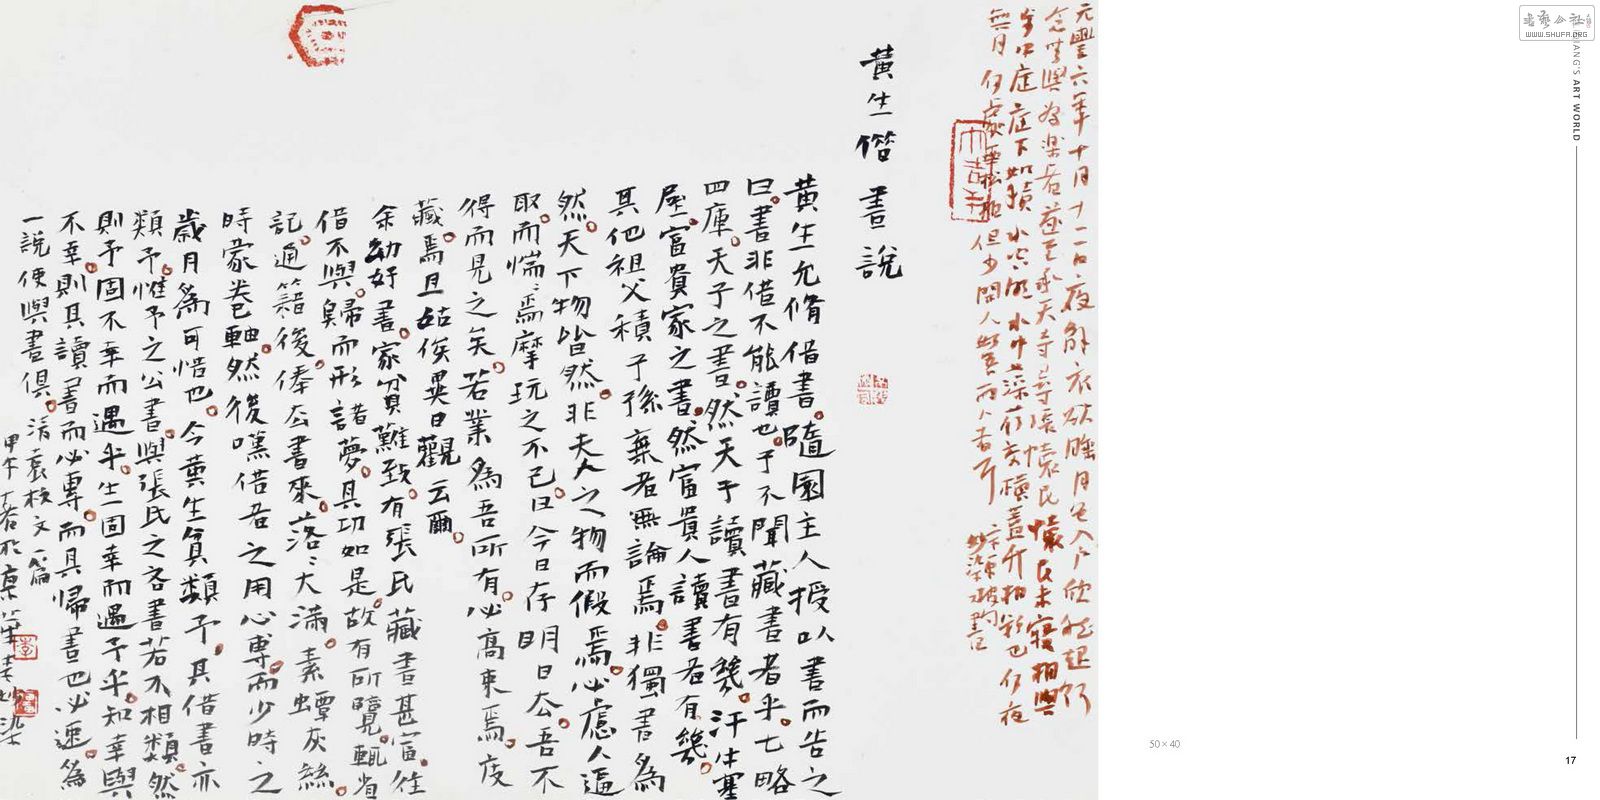 元豐六年十月十二日夜解衣欲睡月色入户欣然起行
念無與爲樂者遂至承天寺尋張懷民懷民未寢相與
步中庭庭下如積水空明水中藻荇交橫蓋竹柏影也何夜
無月何處無松柏但少閒人如吾兩人者耳
大吉羊
黃生借書說
黃生允脩借書隨園主人授以書而告之
曰書非借不能讀也子不聞藏書者乎七略
四庫天子之書然天子讀書有幾汗牛塞
屋富貴家之書然富貴人讀書者有幾
其他祖父積子孫棄者無論焉非獨書爲
然天下物皆然非夫人之物而假焉必慮人逼
取而惴惴焉摩玩之不已曰今日存明日去吾不
得而見之矣若業爲吾所有必高束焉庋
藏焉曰姑俟異日觀云爾
余幼好書家貧難致有張氏藏書甚富往
借不與歸而形諸夢其切如是故有所覽輒省
記通籍後俸去書來落落大滿素蟫灰絲
時蒙卷軸然後嘆借者之用心專而少時之
歲月爲可惜也今黃生貧類予其借書亦
類予惟予之公書與張氏之吝書若不相類然
則予固不幸而遇張乎生固幸而遇予乎知幸與
不幸則其讀書而必專而其歸書也必速爲
一說使與書俱清袁枚文一篇
甲午
50×40
書法公社
WWW.SHUFA.ORG
ART WORLD
17